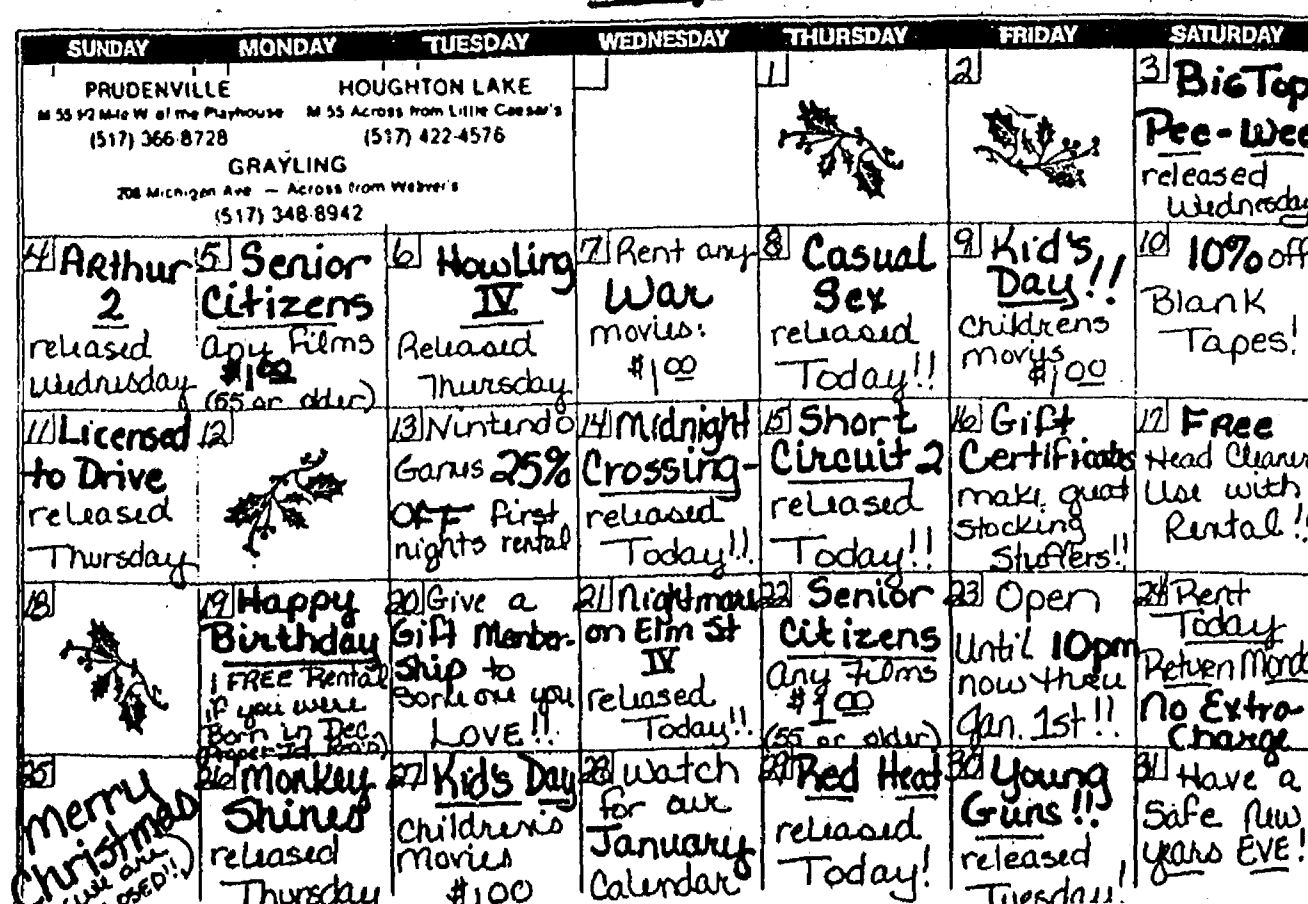 SUNDAY MONDAY TUESDAY WEDNESDAY THURSDAY FRIDAY SATURDAY
PRUDENVILLE
M 55 1/2 Mile W of the Playhouse
(517) 366-8728
HOUGHTON LAKE
M 55 Across from Little Caesar's
(517) 422-4576
GRAYLING
208 Michigan Ave — Across from Weaver's
(517) 348-8942
1
2
3 Big Top
Pee-Wee
released
Wednesday
4 Arthur
2
released
Wednesday
5 Senior
Citizens
any films
$1.00
(55 or older)
6 Howling
IV
Released
Thursday
7 Rent any
War
movies:
$1.00
8 Casual
Sex
released
Today!!
9 Kid's
Day!!
Childrens
movies
$1.00
10 10% off
Blank
Tapes!
11 Licensed
to Drive
released
Thursday
12
13 Nintendo
Games 25%
OFF first
nights rental
14 Midnight
Crossing-
released
Today!!
15 Short
Circuit 2
released
Today!!
16 Gift
Certificates
make great
Stocking
Stuffers!!
17 FRee
Head Cleaner
Use with
Rental!!
18
19 Happy
Birthday
1 FREE Rental
if you were
Born in Dec.
(Proper Id Req'd)
20 Give a
Gift Member-
ship to
Someone you
LOVE!!
21 Nightmare
on Elm St
IV
released
Today!!
22 Senior
Citizens
Any Films
$1.00
(55 or older)
23 Open
Until 10pm
now thru
Jan. 1st!!
24 Rent
Today
Return Mond
No Extra-
Charge
25
Merry
Christmas
(we are
CLOSED!!)
26 Monkey
Shines
released
Thursday
27 Kid's Day
Children's
Movies
$1.00
28 Watch
for our
January
Calendar
29 Red Heat
released
Today!
30 Young
Guns!!
released
Tuesday!
31 Have a
Safe New
years EVE!